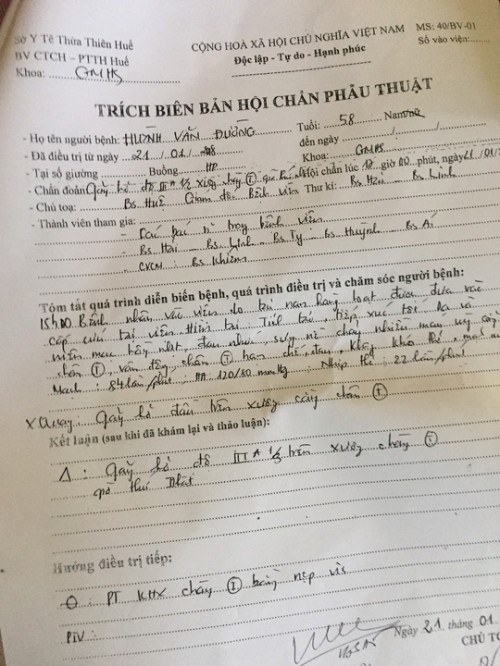 Sở Y Tế Thừa Thiên Huế
BV CTCH - PTTH Huế
Khoa: GMHS
CỘNG HOÀ XÃ HỘI CHỦ NGHĨA VIỆT NAM
Độc lập - Tự do - Hạnh phúc
MS: 40/BV-01
Số vào viện:
TRÍCH BIÊN BẢN HỘI CHẨN PHẪU THUẬT
- Họ tên người bệnh: HUỲNH VĂN ĐƯỜNG Tuổi: 58 Nam/nữ
- Đã điều trị từ ngày 21/01/ đến ngày / /
- Tại số giường Buồng Khoa: GMHS
- Chẩn đoán Gãy hở độ III A xương chày Hội chẩn lúc giờ 00 phút, ngày 21/01/
- Chủ toạ: Bs Huệ Giám đốc Bệnh viện Thư kí: Bs Hai Bs Linh
- Thành viên tham gia:
- Các bác sĩ trong bệnh viện
- Bs Hai - Bs Linh - Bs Ty - Bs Huỳnh - Bs Ái
- CVCM: Bs Khiêm
Tóm tắt quá trình diễn biến bệnh, quá trình điều trị và chăm sóc người bệnh:
15h00 Bệnh nhân vào viện do tai nạn hàng loạt được đưa vào
cấp cứu tại viện Hiện tại Tỉnh táo tiếp xúc tốt Da và
niêm mạc hồng nhạt, đau nhức, sưng nề chảy nhiều máu
chân T, vận động chân T hạn chế, đau, không khó thở
Mạch: 84 lần/phút HA 120/80 mmHg Nhịp thở: 22 lần/phút
XQuang: Gãy hở đầu trên xương cẳng chân T
Kết luận (sau khi đã khám lại và thảo luận):
Δ: Gãy hở độ III A ⅓ trên xương chày T
giờ thứ nhất
Hướng điều trị tiếp:
PT KHX chày T bằng nẹp vis
PTV:
Ngày 21 tháng 01
CHỦ TO